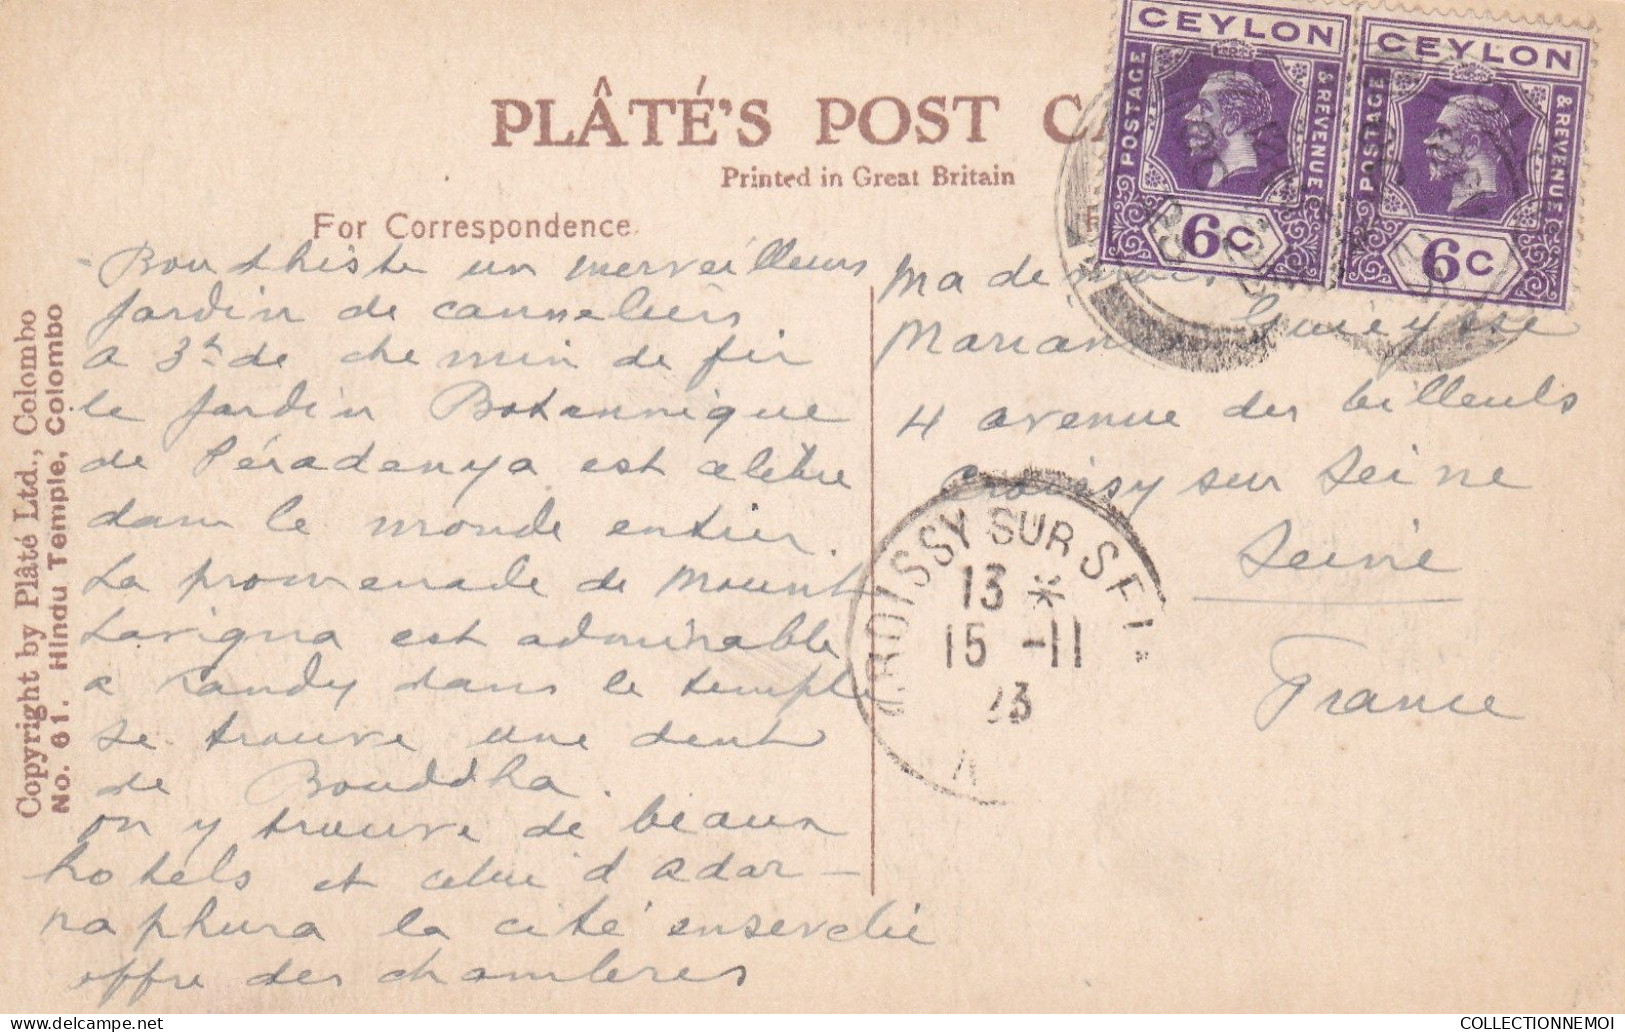 PLÂTÉ'S POST CA
Printed in Great Britain
For Correspondence
CEYLON
POSTAGE
& REVENUE
6c
CEYLON
POSTAGE
& REVENUE
6c
Copyright by Plâté Ltd., Colombo
No. 61. Hindu Temple, Colombo
Bouthiste un merveilleux
jardin de canneliers
a 3h de chemin de fer
le jardin Botannique
de Péradenya est celèbre
dans le monde entier.
La promenade de Mount
Lavigna est admirable
a Kandy dans le temple
se trouve une dent
de Bouddha.
on y trouve de beaux
hotels et celui d Adar-
raphura la cité enservelie
offre des chambres
Mademoi
Marian Guieysse
4 avenue des tilleuls
Croissy sur Seine
Seine
France
CROISSY SUR SEI
13 *
15 -11
23